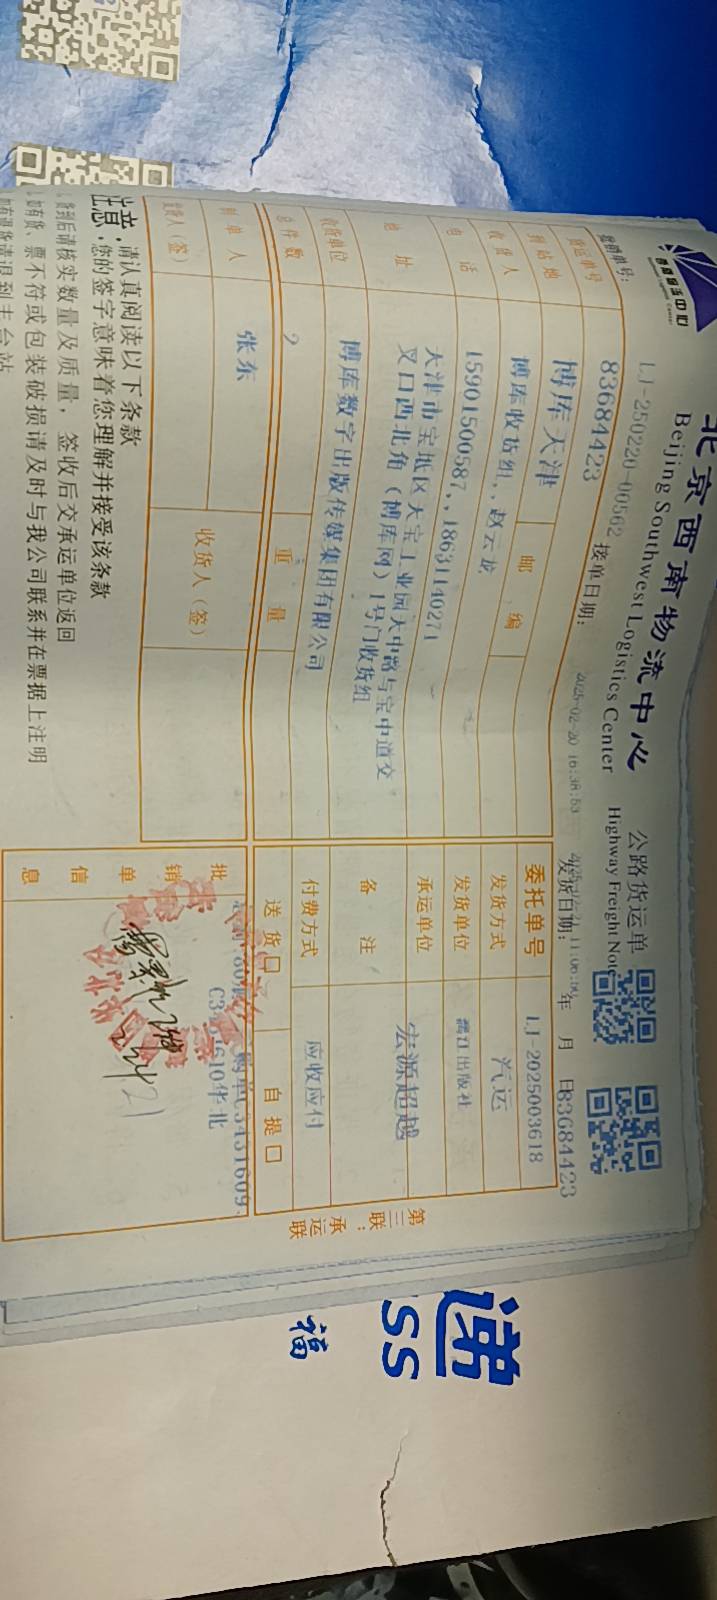 西南物流中心
Southwest Logistics Center
北京西南物流中心
Beijing Southwest Logistics Center
公路货运单
Highway Freight Note
营销单号: LJ-250220-00562 接单日期: 2025-02-20 16:38:53 发货日期: 年 月 日 83684423
货运单号 83684423
到站地 博库天津 邮编
委托单号 LJ-2025003618
收货人 博库收货组,, 赵云龙
发货方式 汽运
电话 15901500587,, 18631140271
发货单位 漓江出版社
地址 天津市宝坻区天宝工业园天中路与宝中道交
叉口西北角(博库网)1号门收货组
承运单位 宏源超越
收货单位 博库数字出版传媒集团有限公司
备注
总件数 2 重量
付费方式 应收应付
制单人 张东
送货口 自提口
发货人(签) 收货人(签)
批销单信息
C3451609、
610华北
第三联:承运联
注意:请认真阅读以下条款
您的签字意味着您理解并接受该条款
货到后请核实数量及质量,签收后交承运单位返回
如有货、票不符或包装破损请及时与我公司联系并在票据上注明
如有退货请退到丰台站
递
SS
福